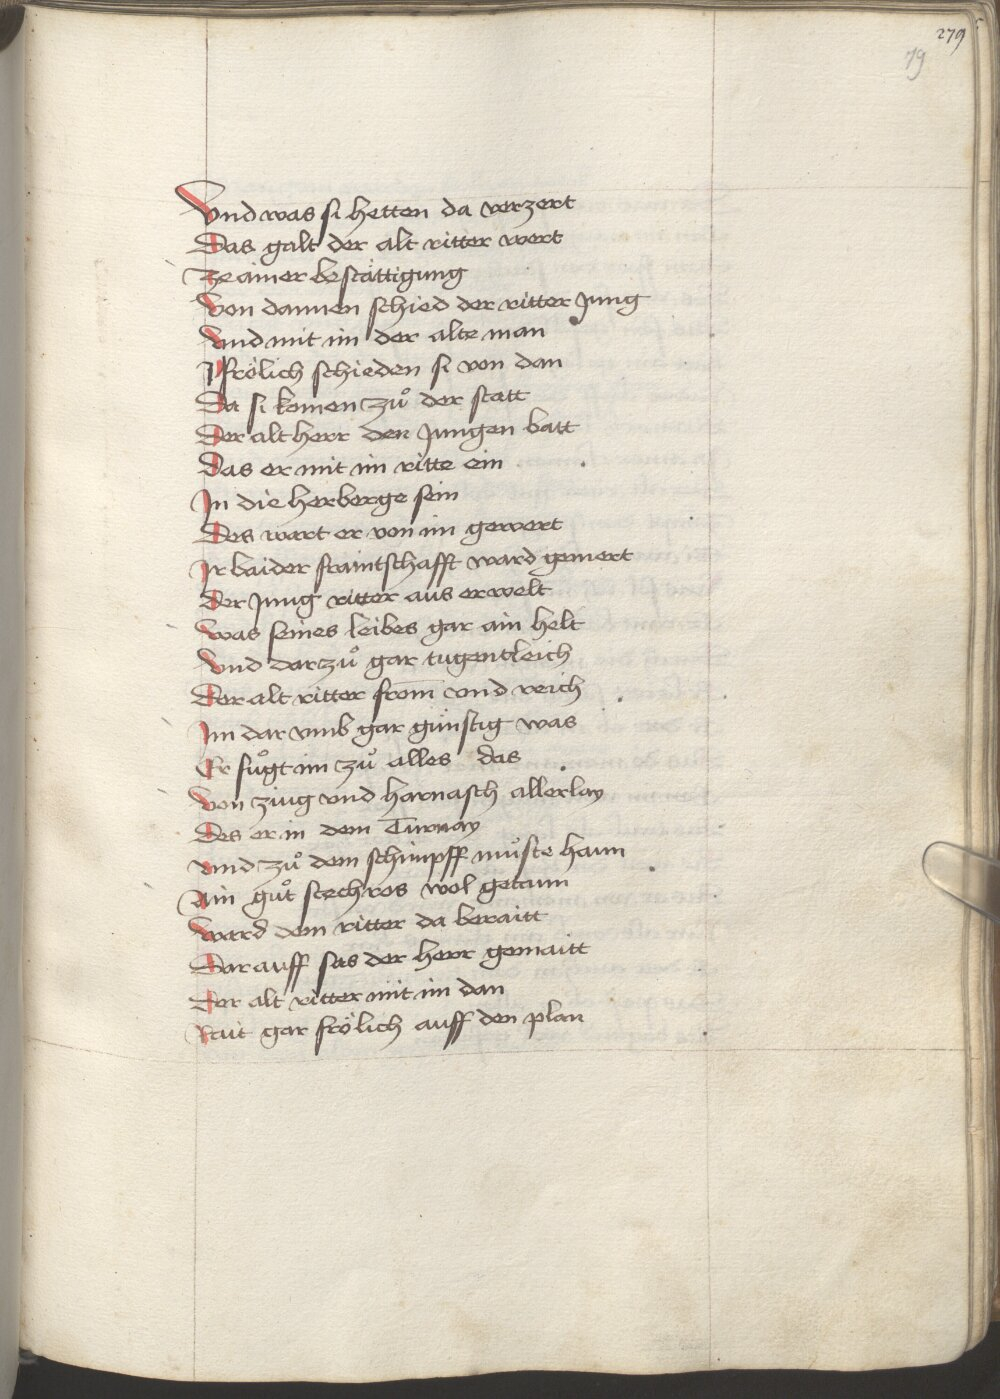 279
79
Vnd was si hetten da verzert
Das galt der alt ritter wert
Ze ainer bestättigung
Von dannen schied der ritter Jung
Vnd mit im der alte man
frölich schieden si von dan
Da si komen zů der statt
Der alt herr den Jungen batt
Das er mit im ritte ein
In die herberge sein
Des wart er von im gewert
Ir baider fraintschafft ward gemert
Der Jung ritter aus erwelt
Was seines leibes gar ain helt
Vnd darzů gar tugentleich
Der alt ritter from̄ vnd reich
Im dar vmb gar günstig was
Er fůgt im zů alles das
Von ziug vnd harnasch allerlay
Des er in dem Turnay
Vnd zů dem schimpff můste haun
Ain gůt stechros wol getaun
Ward dem ritter da beraitt
Dar auff sas der herr gemaitt
Der alt ritter mit im dan
Rait gar frölich auff den plan